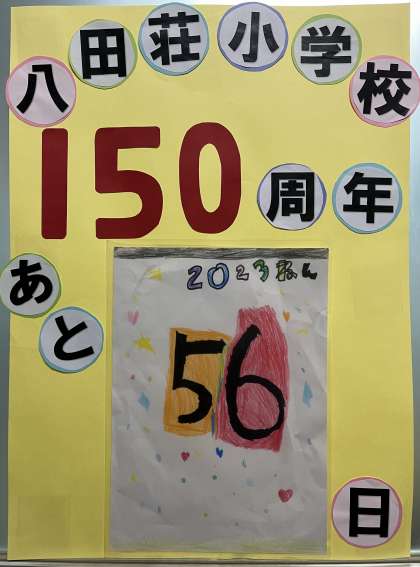 八田荘小学校
150周年
あと
2023
56
日